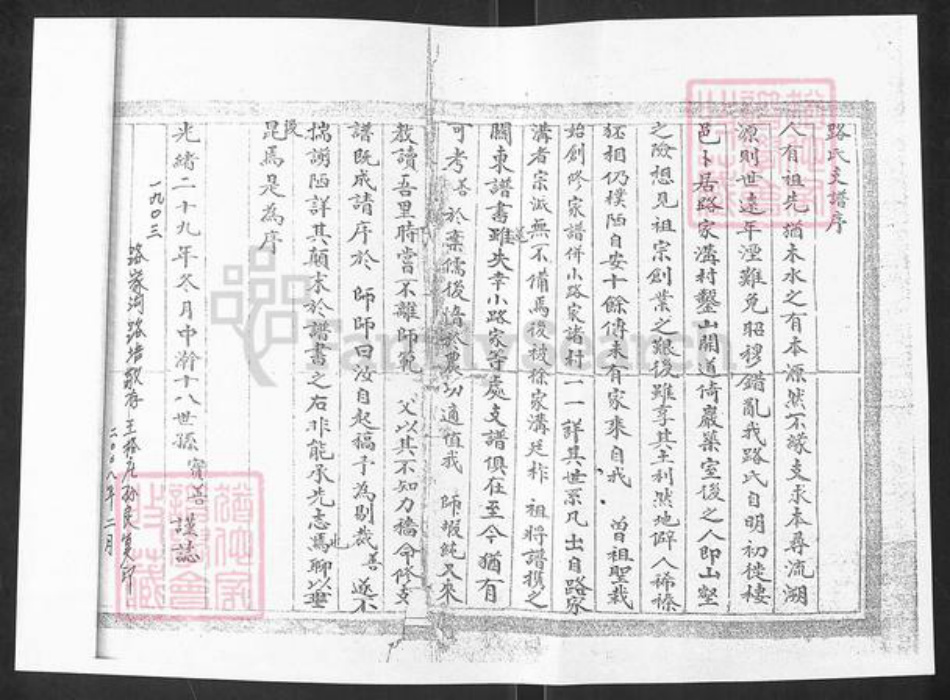 路氏支譜序
人有祖先猶木水之有本源然不緣支求本尋流溯
源則世遠年湮難免昭穆錯亂我路氏自明初徙棲
邑卜居路家溝村鑿山開道倚巖築室後之人即山壑
之險想見祖宗創業之艱後雖享其土利然地僻人稀榛
狉相仍樸陋自安十餘傳未有家乘自我 曾祖聖栽
始創修家譜併小路家諸村一一詳其世系凡出自路家
溝者宗派無不備焉後被徐家溝廷柞 祖將譜携之
關東譜書雖失幸小路家等處支譜俱在至今猶有
可考善於棄儒後惰於農功適值我 師瑕純又來
教讀吾里時當不離師範 父以其不知力穡命修支
譜既成請序於 師師曰汝自起稿予為剔裁善遂不
揣謭陋詳其顛末於譜書之右非能承先志焉聊以垂
後昆焉是為序
光緒二十九年冬月中澣十八世孫 寶善 謹誌
一九〇三
路家溝路培敬存
二〇〇八年二月
FamilySearch